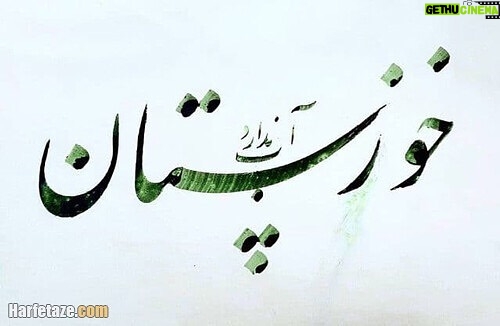 GETHUCINEMA
خوزستان
آب ندارد
Harfetaze.com